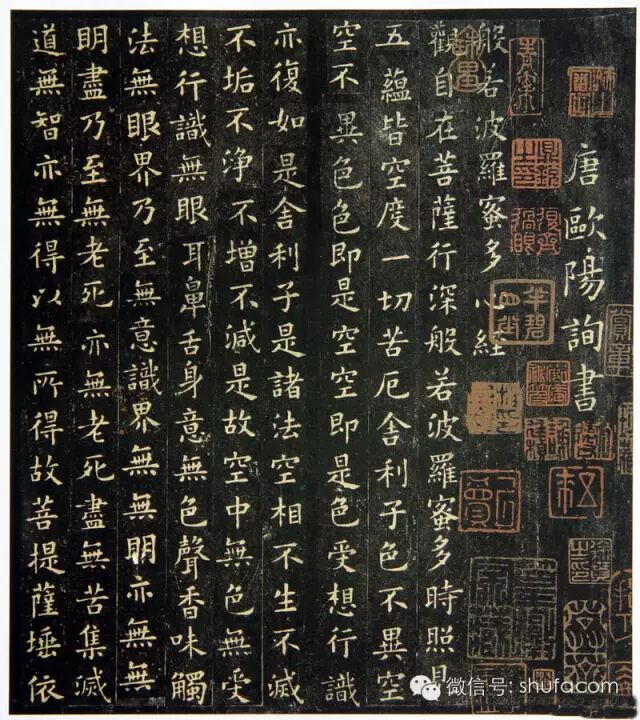 唐歐陽詢書
般若波羅蜜多心經
觀自在菩薩行深般若波羅蜜多時照見
五蘊皆空度一切苦厄舍利子色不異空
空不異色色即是空空即是色受想行識
亦復如是舍利子是諸法空相不生不滅
不垢不淨不增不減是故空中無色無受
想行識無眼耳鼻舌身意無色聲香味觸
法無眼界乃至無意識界無無明亦無無
明盡乃至無老死亦無老死盡無苦集滅
道無智亦無得以無所得故菩提薩埵依
微信号: shufacom